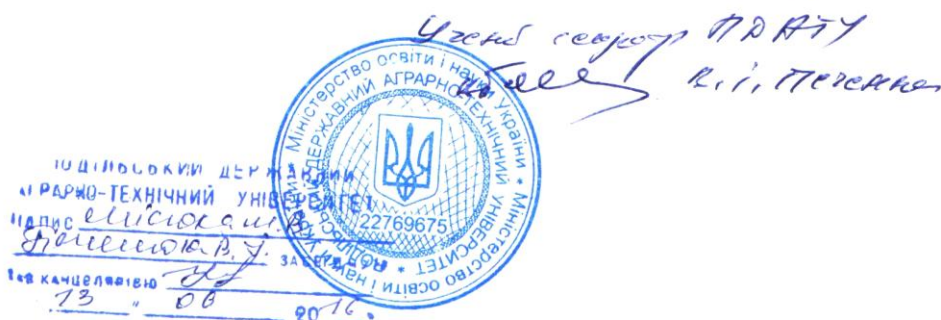 Учений секретар ПДАТУ
Міністерство освіти і науки України * Міністерство освіти і науки України *
ПОДІЛЬСЬКИЙ ДЕРЖАВНИЙ АГРАРНО-ТЕХНІЧНИЙ УНІВЕРСИТЕТ *
22769675
ПОДІЛЬСЬКИЙ ДЕРЖАВНИЙ
АГРАРНО-ТЕХНІЧНИЙ УНІВЕРСИТЕТ
ПІДПИС Місюка М.В.
В. У. ЗАСВІДЧУЮ
Зав КАНЦЕЛЯРІЄЮ
13 " 06 2016 р